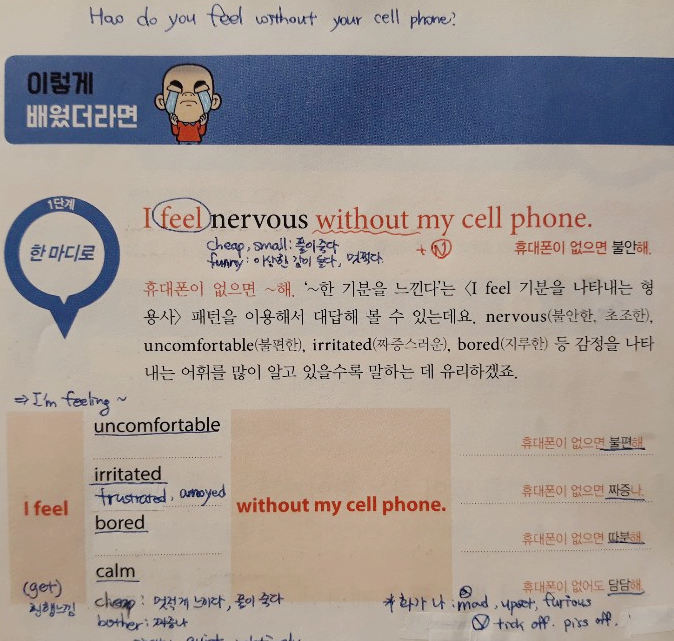 Hao do you feel without your cell phone?
이렇게
배웠더라면
1단계
한 마디로
I feel nervous without my cell phone.
cheap, small : 풀이 죽다
+ N
휴대폰이 없으면 불안해.
funny : 이상한 감이 들다, 멋쩍다
휴대폰이 없으면 ~해. '~한 기분을 느낀다'는 〈I feel 기분을 나타내는 형
용사〉 패턴을 이용해서 대답해 볼 수 있는데요. nervous(불안한, 초조한),
uncomfortable(불편한), irritated(짜증스러운), bored(지루한) 등 감정을 나타
내는 어휘를 많이 알고 있을수록 말하는 데 유리하겠죠.
⇒ I'm feeling ~
uncomfortable
휴대폰이 없으면 불편해.
irritated
휴대폰이 없으면 짜증나.
frustrated, annoyed
I feel
without my cell phone.
bored
휴대폰이 없으면 따분해.
calm
휴대폰이 없어도 담담해.
(get)
진행느낌
cheap : 멋적게 느끼다, 풀이 죽다
* 화가 나 : mad, upset, furious
bother : 짜증나
Ⓥ tick off. piss off.